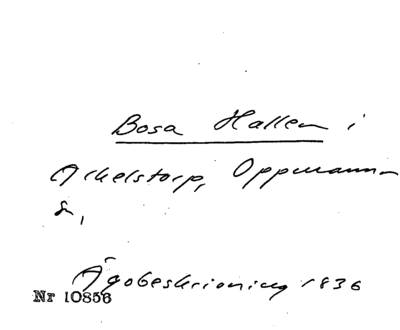 Bosa Hallen i
Arkelstorp, Oppmanna
s,
Ägobeskrivning 1836
Nr 10856